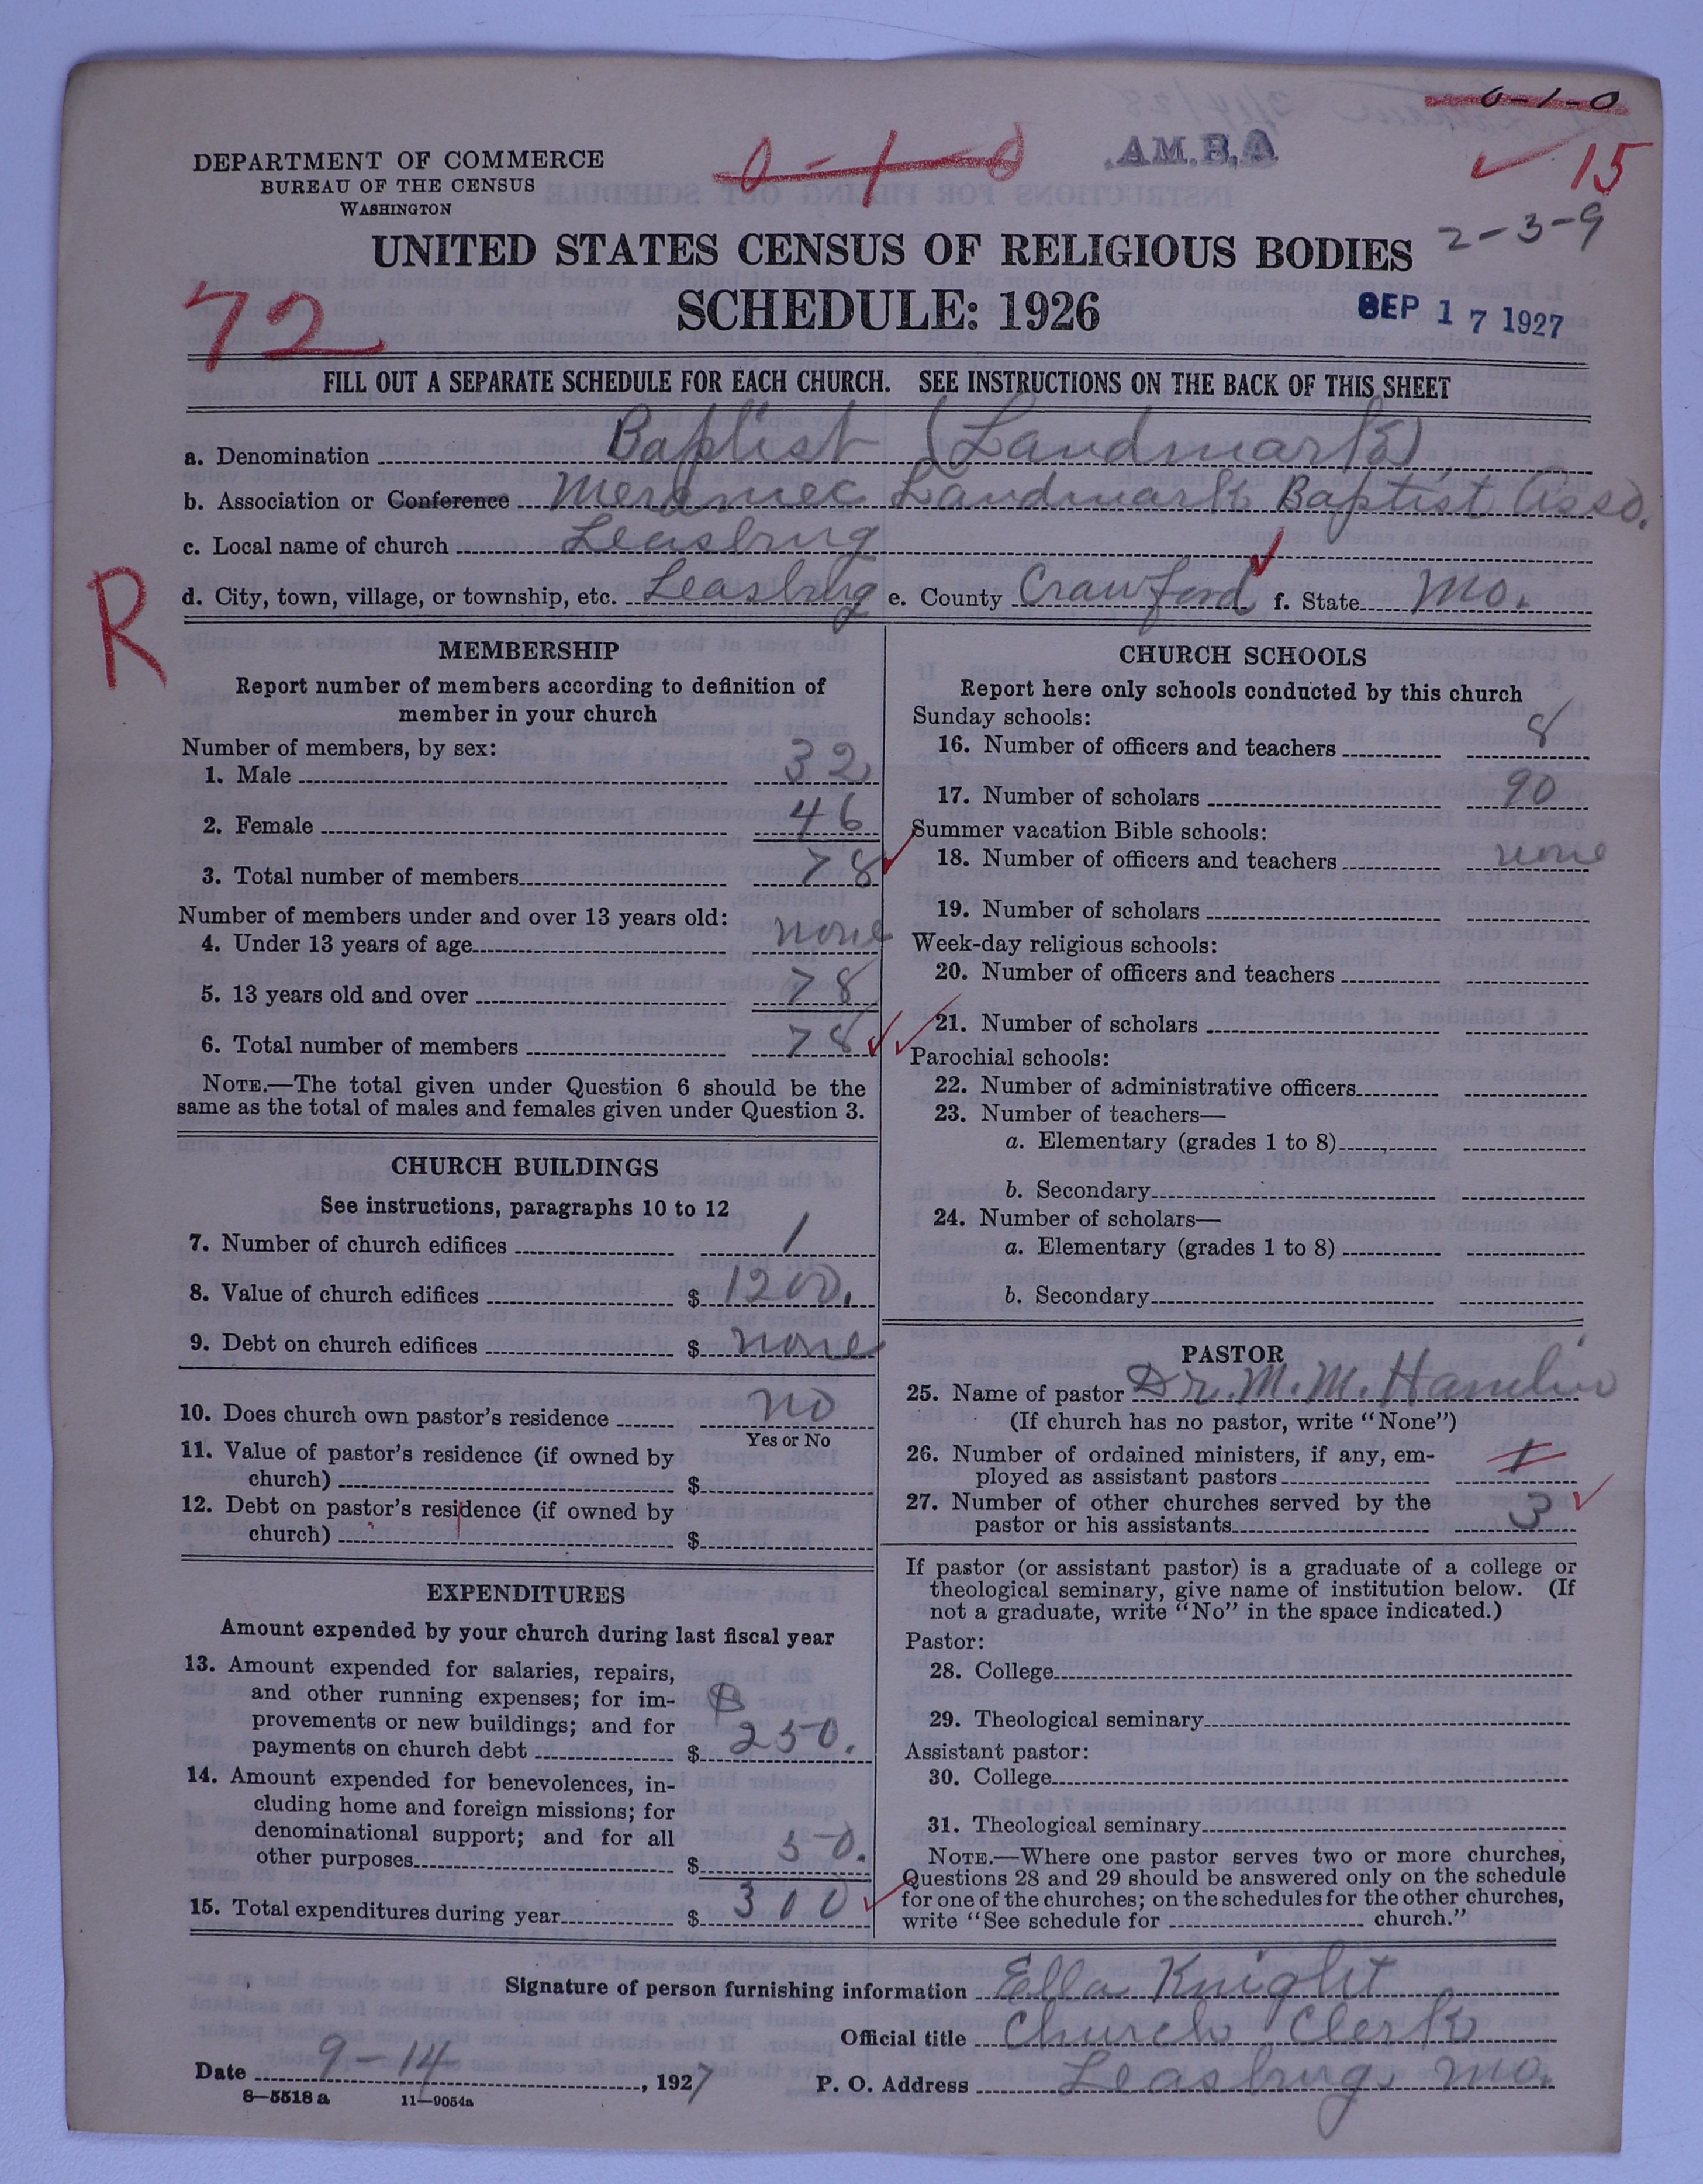 0-1-0
DEPARTMENT OF COMMERCE
BUREAU OF THE CENSUS
WASHINGTON
0-1-0
A.M.B.A
15
2-3-9
UNITED STATES CENSUS OF RELIGIOUS BODIES
SCHEDULE: 1926
72
SEP 17 1927
FILL OUT A SEPARATE SCHEDULE FOR EACH CHURCH. SEE INSTRUCTIONS ON THE BACK OF THIS SHEET
a. Denomination Baptist (Landmark)
b. Association or Conference Meramec Landmark Baptist Asso.
c. Local name of church Leasburg
d. City, town, village, or township, etc. Leasburg e. County Crawford f. State Mo.
R
MEMBERSHIP
Report number of members according to definition of
member in your church
Number of members, by sex:
1. Male 32
2. Female 46
3. Total number of members 78
Number of members under and over 13 years old:
4. Under 13 years of age none
5. 13 years old and over 78
6. Total number of members 78
NOTE.—The total given under Question 6 should be the
same as the total of males and females given under Question 3.
CHURCH BUILDINGS
See instructions, paragraphs 10 to 12
7. Number of church edifices 1
8. Value of church edifices $ 1200.
9. Debt on church edifices $ none
10. Does church own pastor's residence no
Yes or No
11. Value of pastor's residence (if owned by
church) $
12. Debt on pastor's residence (if owned by
church) $
EXPENDITURES
Amount expended by your church during last fiscal year
13. Amount expended for salaries, repairs,
and other running expenses; for im-
provements or new buildings; and for
payments on church debt $ $250.
14. Amount expended for benevolences, in-
cluding home and foreign missions; for
denominational support; and for all
other purposes $ 50.
15. Total expenditures during year $ 300
CHURCH SCHOOLS
Report here only schools conducted by this church
Sunday schools:
16. Number of officers and teachers 8
17. Number of scholars 90
Summer vacation Bible schools:
18. Number of officers and teachers none
19. Number of scholars
Week-day religious schools:
20. Number of officers and teachers
21. Number of scholars
Parochial schools:
22. Number of administrative officers
23. Number of teachers—
a. Elementary (grades 1 to 8)
b. Secondary
24. Number of scholars—
a. Elementary (grades 1 to 8)
b. Secondary
PASTOR
25. Name of pastor Dr. M. M. Hamlin
(If church has no pastor, write "None")
26. Number of ordained ministers, if any, em-
ployed as assistant pastors 1
27. Number of other churches served by the
pastor or his assistants 3
If pastor (or assistant pastor) is a graduate of a college or
theological seminary, give name of institution below. (If
not a graduate, write "No" in the space indicated.)
Pastor:
28. College
29. Theological seminary
Assistant pastor:
30. College
31. Theological seminary
NOTE.—Where one pastor serves two or more churches,
Questions 28 and 29 should be answered only on the schedule
for one of the churches; on the schedules for the other churches,
write "See schedule for church."
Signature of person furnishing information Ella Knight
Official title Church Clerk
Date 9-14, 1927 P. O. Address Leasburg Mo.
8—5518 a 11—9054a